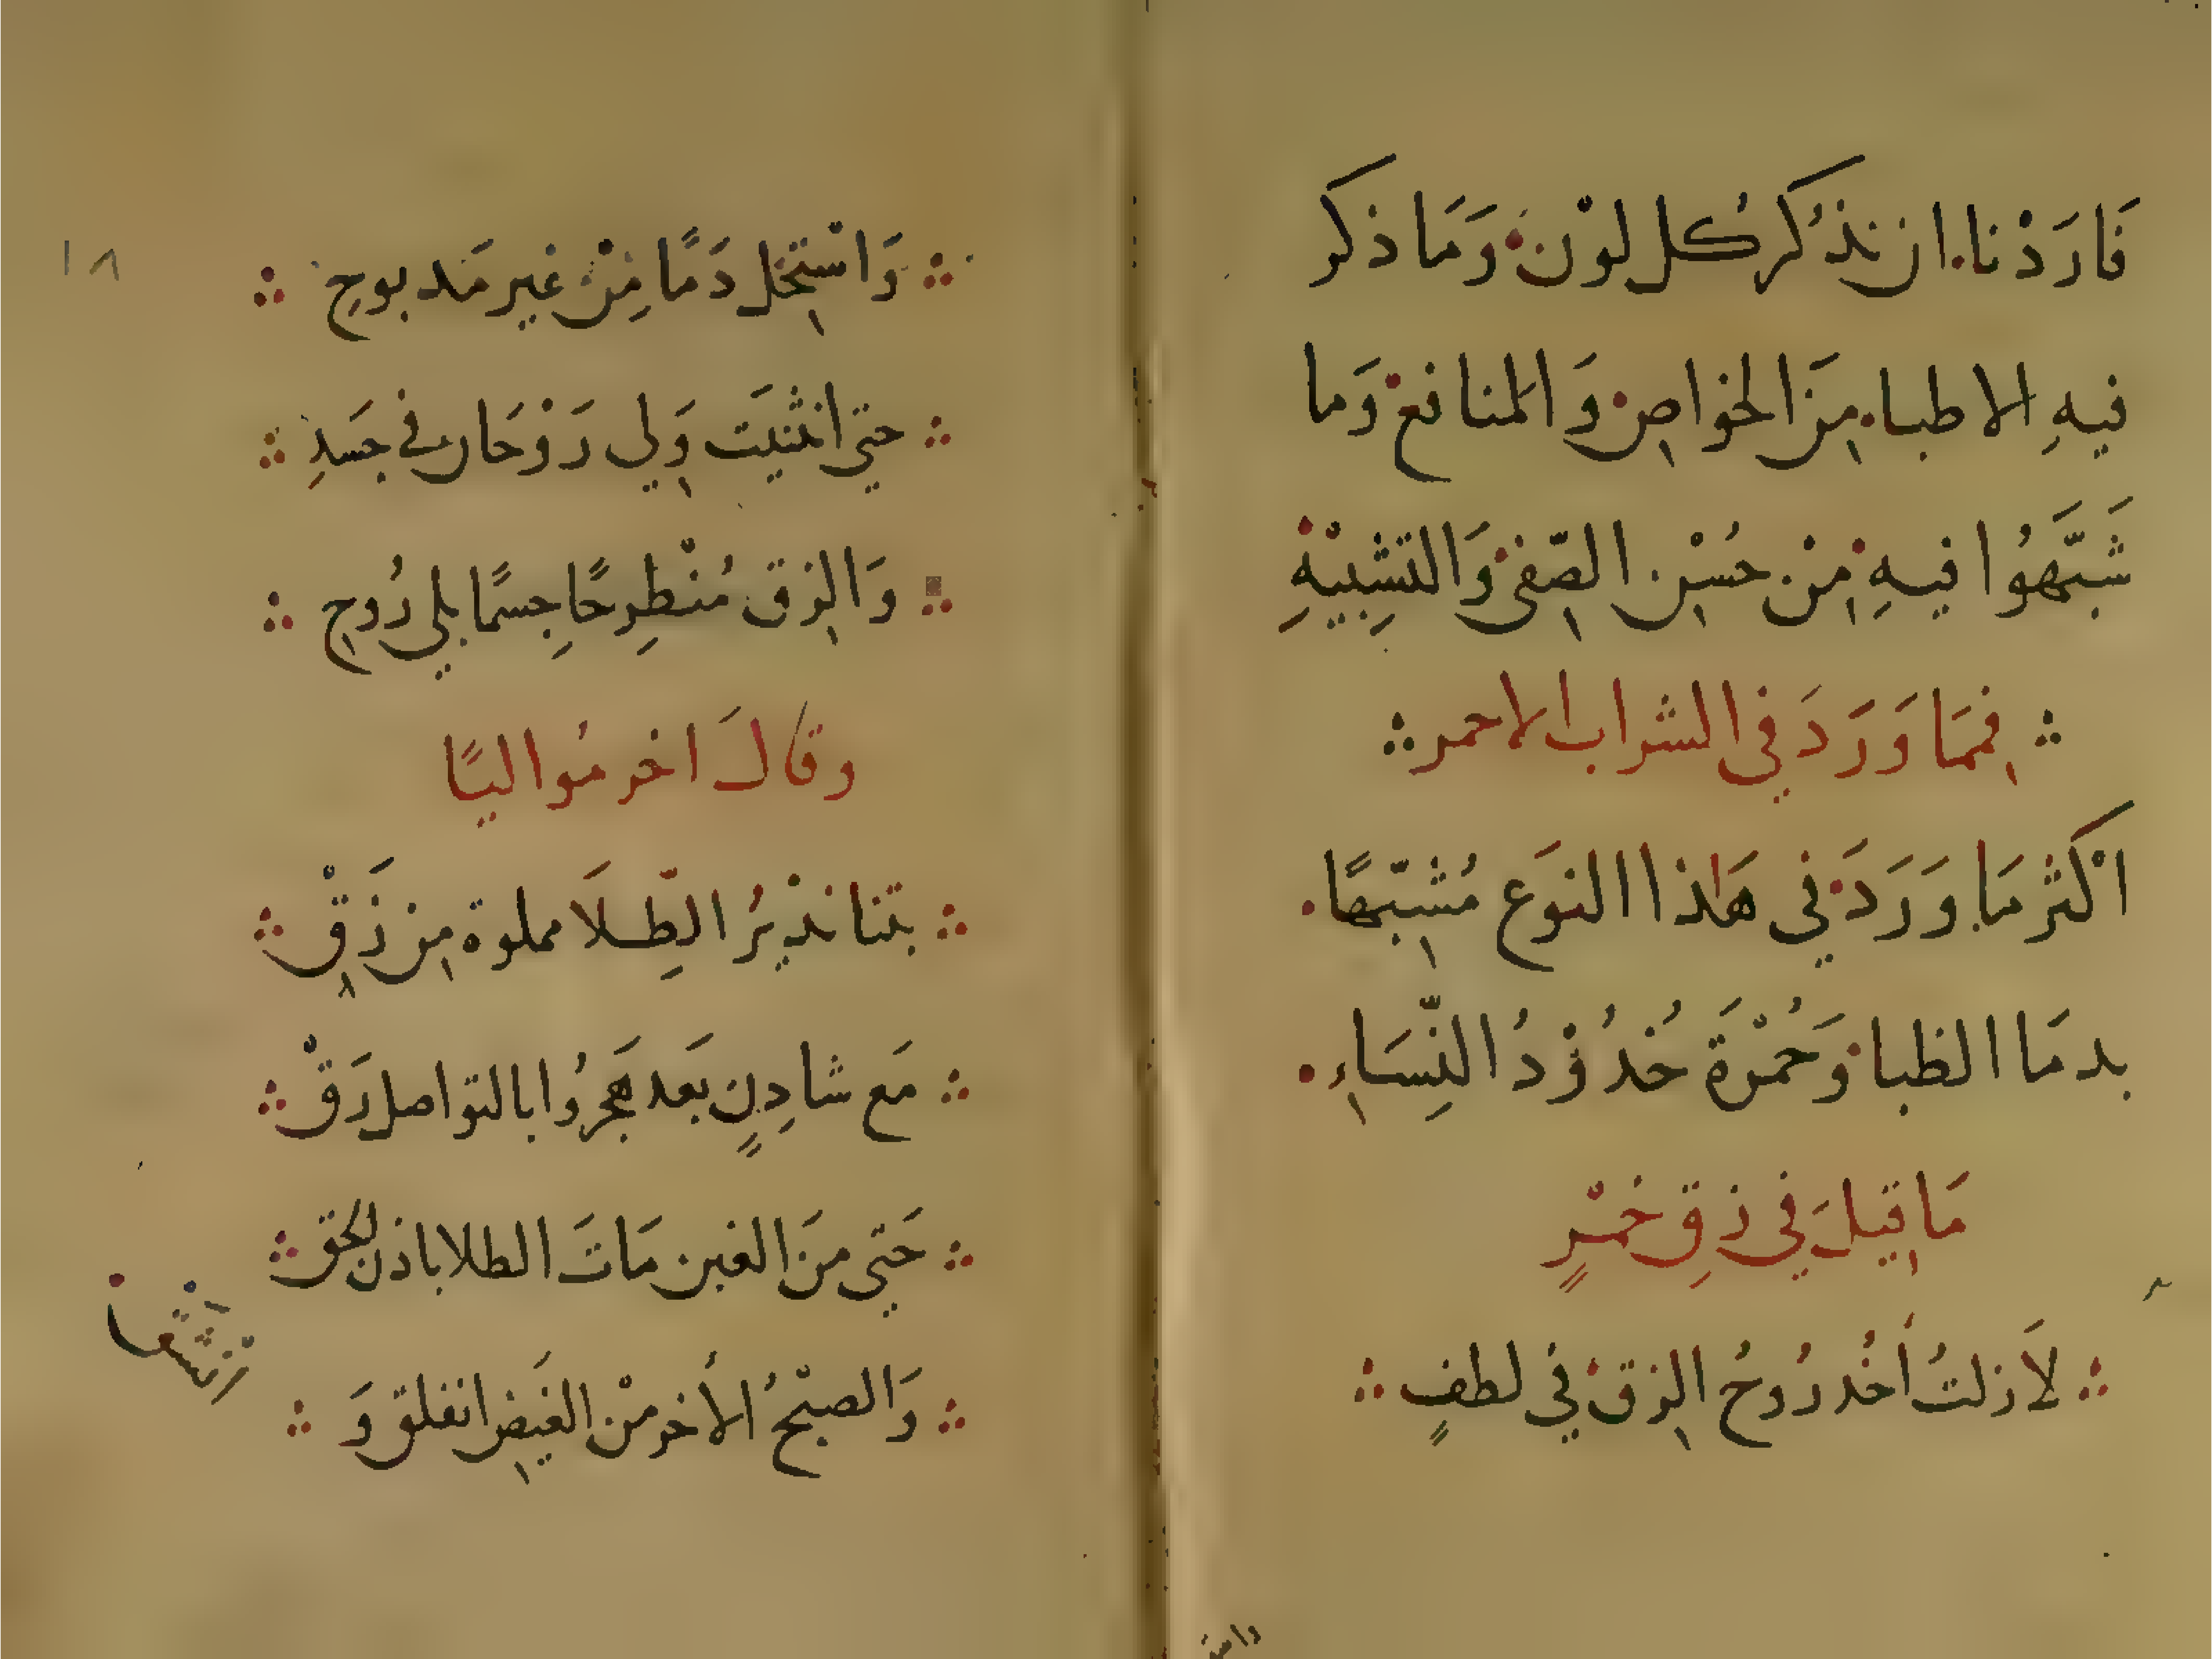 فَارَدْنا ان نذكُر كُل لوْن وَمَا ذكر
فيهِ الاطباء مِنَ الخواص وَالمنافع وَما
شَبَّهُوا فيهِ مِنْ حُسْن الصّفى وَالتشبِيْهِ
فِممَا وَرَدَ فِي الشراب الاحمر
اكْثر مَا وَرَدَ في هَاذا النوَع مُشبّهًا
بدمَا الظبا وَحُمْرَةَ خُدُوْدُ النِّسَاءِ
مَا قيلَ فِي زقِ خَمْرٍ
لاَ زلتُ أخُد رُوحُ الزق فِي لطفٍ
١٨
وَاسْتِخل دَمًا مِنْ غير مَدبوحِ
حتى انثنيَت وَلِي رَوْحَان في جسَدِ
وَالزق مُنْطرِحًا جِسمًا بلى رُوحِ
وقال اخر مُواليًا
بتنا نديْرُ الطِّلاَ مملوة من زَقْ
مَع شادِنٍ بَعد هَجرُوا بالتواصل رَقْ
حَتى منَ الغبن مَاتَ الطلا باذن الحق
وَالصبْحُ الأخر مِنْ الغَيض انفلق وَ